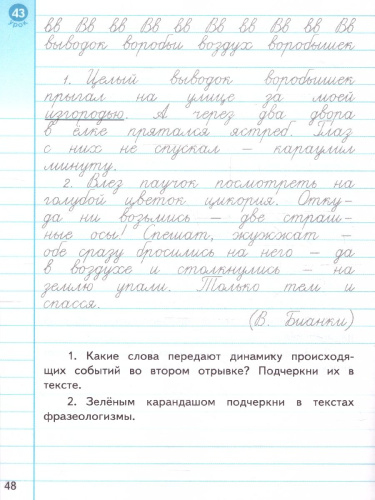 43
УРОК
вв Вв вв Вв вв Вв вв Вв вв вв Вв
выводок воробьи воздух воробышек
1. Целый выводок воробышек
прыгал на улице за моей
изгородью. А через два двора
в ёлке прятался ястреб. Глаз
с них не спускал – караулил
минуту.
2. Влез паучок посмотреть на
голубой цветок цикория. Отку-
да ни возьмись – две страш-
ные осы! Спешат, жужжат –
обе сразу бросились на него – да
в воздухе и столкнулись – на
землю упали. Только тем и
спасся.
(В. Бианки)
1. Какие слова передают динамику происходя-
щих событий во втором отрывке? Подчеркни их в
тексте.
2. Зелёным карандашом подчеркни в текстах
фразеологизмы.
48